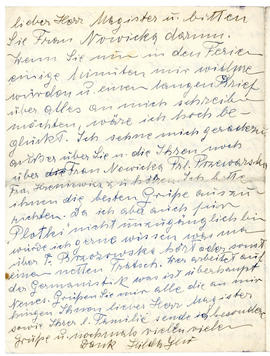 lieber Herr Magister u. bitten
Sie Frau Nowicka darum.
Wenn Sie nur in den Ferien
einige Minuten mir widmen
würden u. einen langen Brief
über alles an mich schreiben
möchten, wäre ich hoch be-
glückt. Ich sehne mich geradezu
über Sie u. die Ihren noch
über Frau Nowicka Frl.
Fra. u. hören. Ich bitte
ihnen die besten Grüße auszu-
richten. Da ich aber auch für
nicht unzugänglich bin
würde ich gerne wissen was man
über P. Brzozowska hört oder sonst
einen netten Tratsch. Wer arbeitet auf
der Germanistik was ist überhaupt
Neues. Grüßen Sie mir alle die an mir
hängen. Ihnen lieber Herr Magister
sowie Ihrer l. Familie sende ich besonders
Grüße u. nochmals vielen vielen
Dank